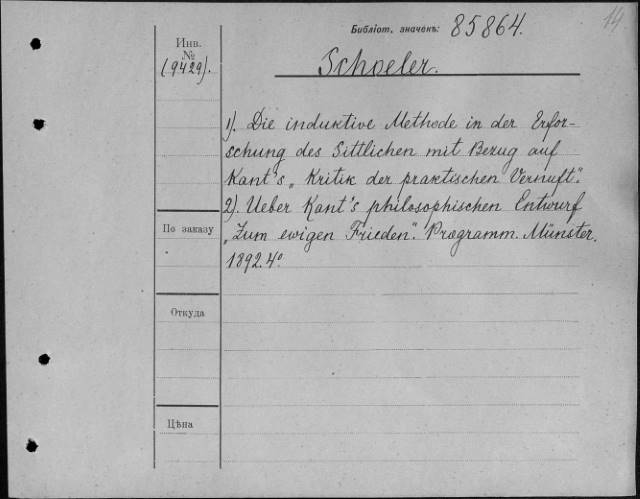 14
Библіот. значекъ: 85864.
Инв.
№
(9429).
Schoeler.
1). Die induktive Methode in der Erfor-
schung des Sittlichen mit Bezug auf
Kant's „Kritik der praktischen Vernuft".
2). Ueber Kant's philosophischen Entwurf
„Zum ewigen Frieden". Programm. Münster.
1892. 4º
По заказу
Откуда
Цѣна